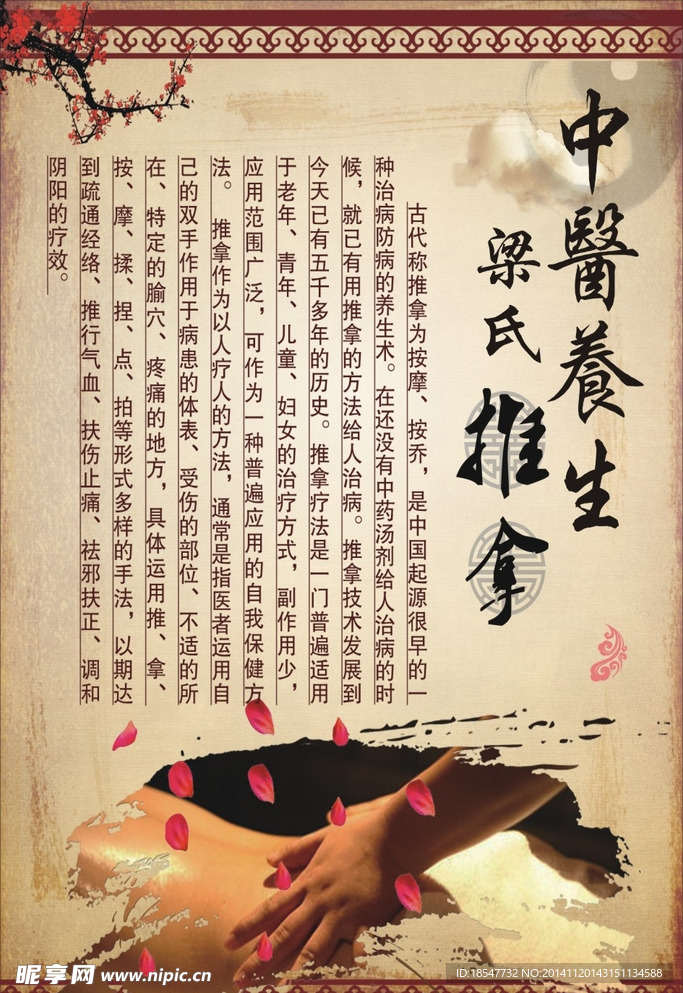 中醫養生
梁氏推拿
古代称推拿为按摩、按乔，是中国起源很早的一
种治病防病的养生术。在还没有中药汤剂给人治病的时
候，就已有用推拿的方法给人治病。推拿技术发展到
今天已有五千多年的历史。推拿疗法是一门普遍适用
于老年、青年、儿童、妇女的治疗方式，副作用少，
应用范围广泛，可作为一种普遍应用的自我保健方
法。 推拿作为以人疗人的方法，通常是指医者运用自
己的双手作用于病患的体表、受伤的部位、不适的所
在、特定的腧穴、疼痛的地方，具体运用推、拿、
按、摩、揉、捏、点、拍等形式多样的手法，以期达
到疏通经络、推行气血、扶伤止痛、祛邪扶正、调和
阴阳的疗效。
昵享网 www.nipic.cn
ID:18547732 NO:20141120143151134588